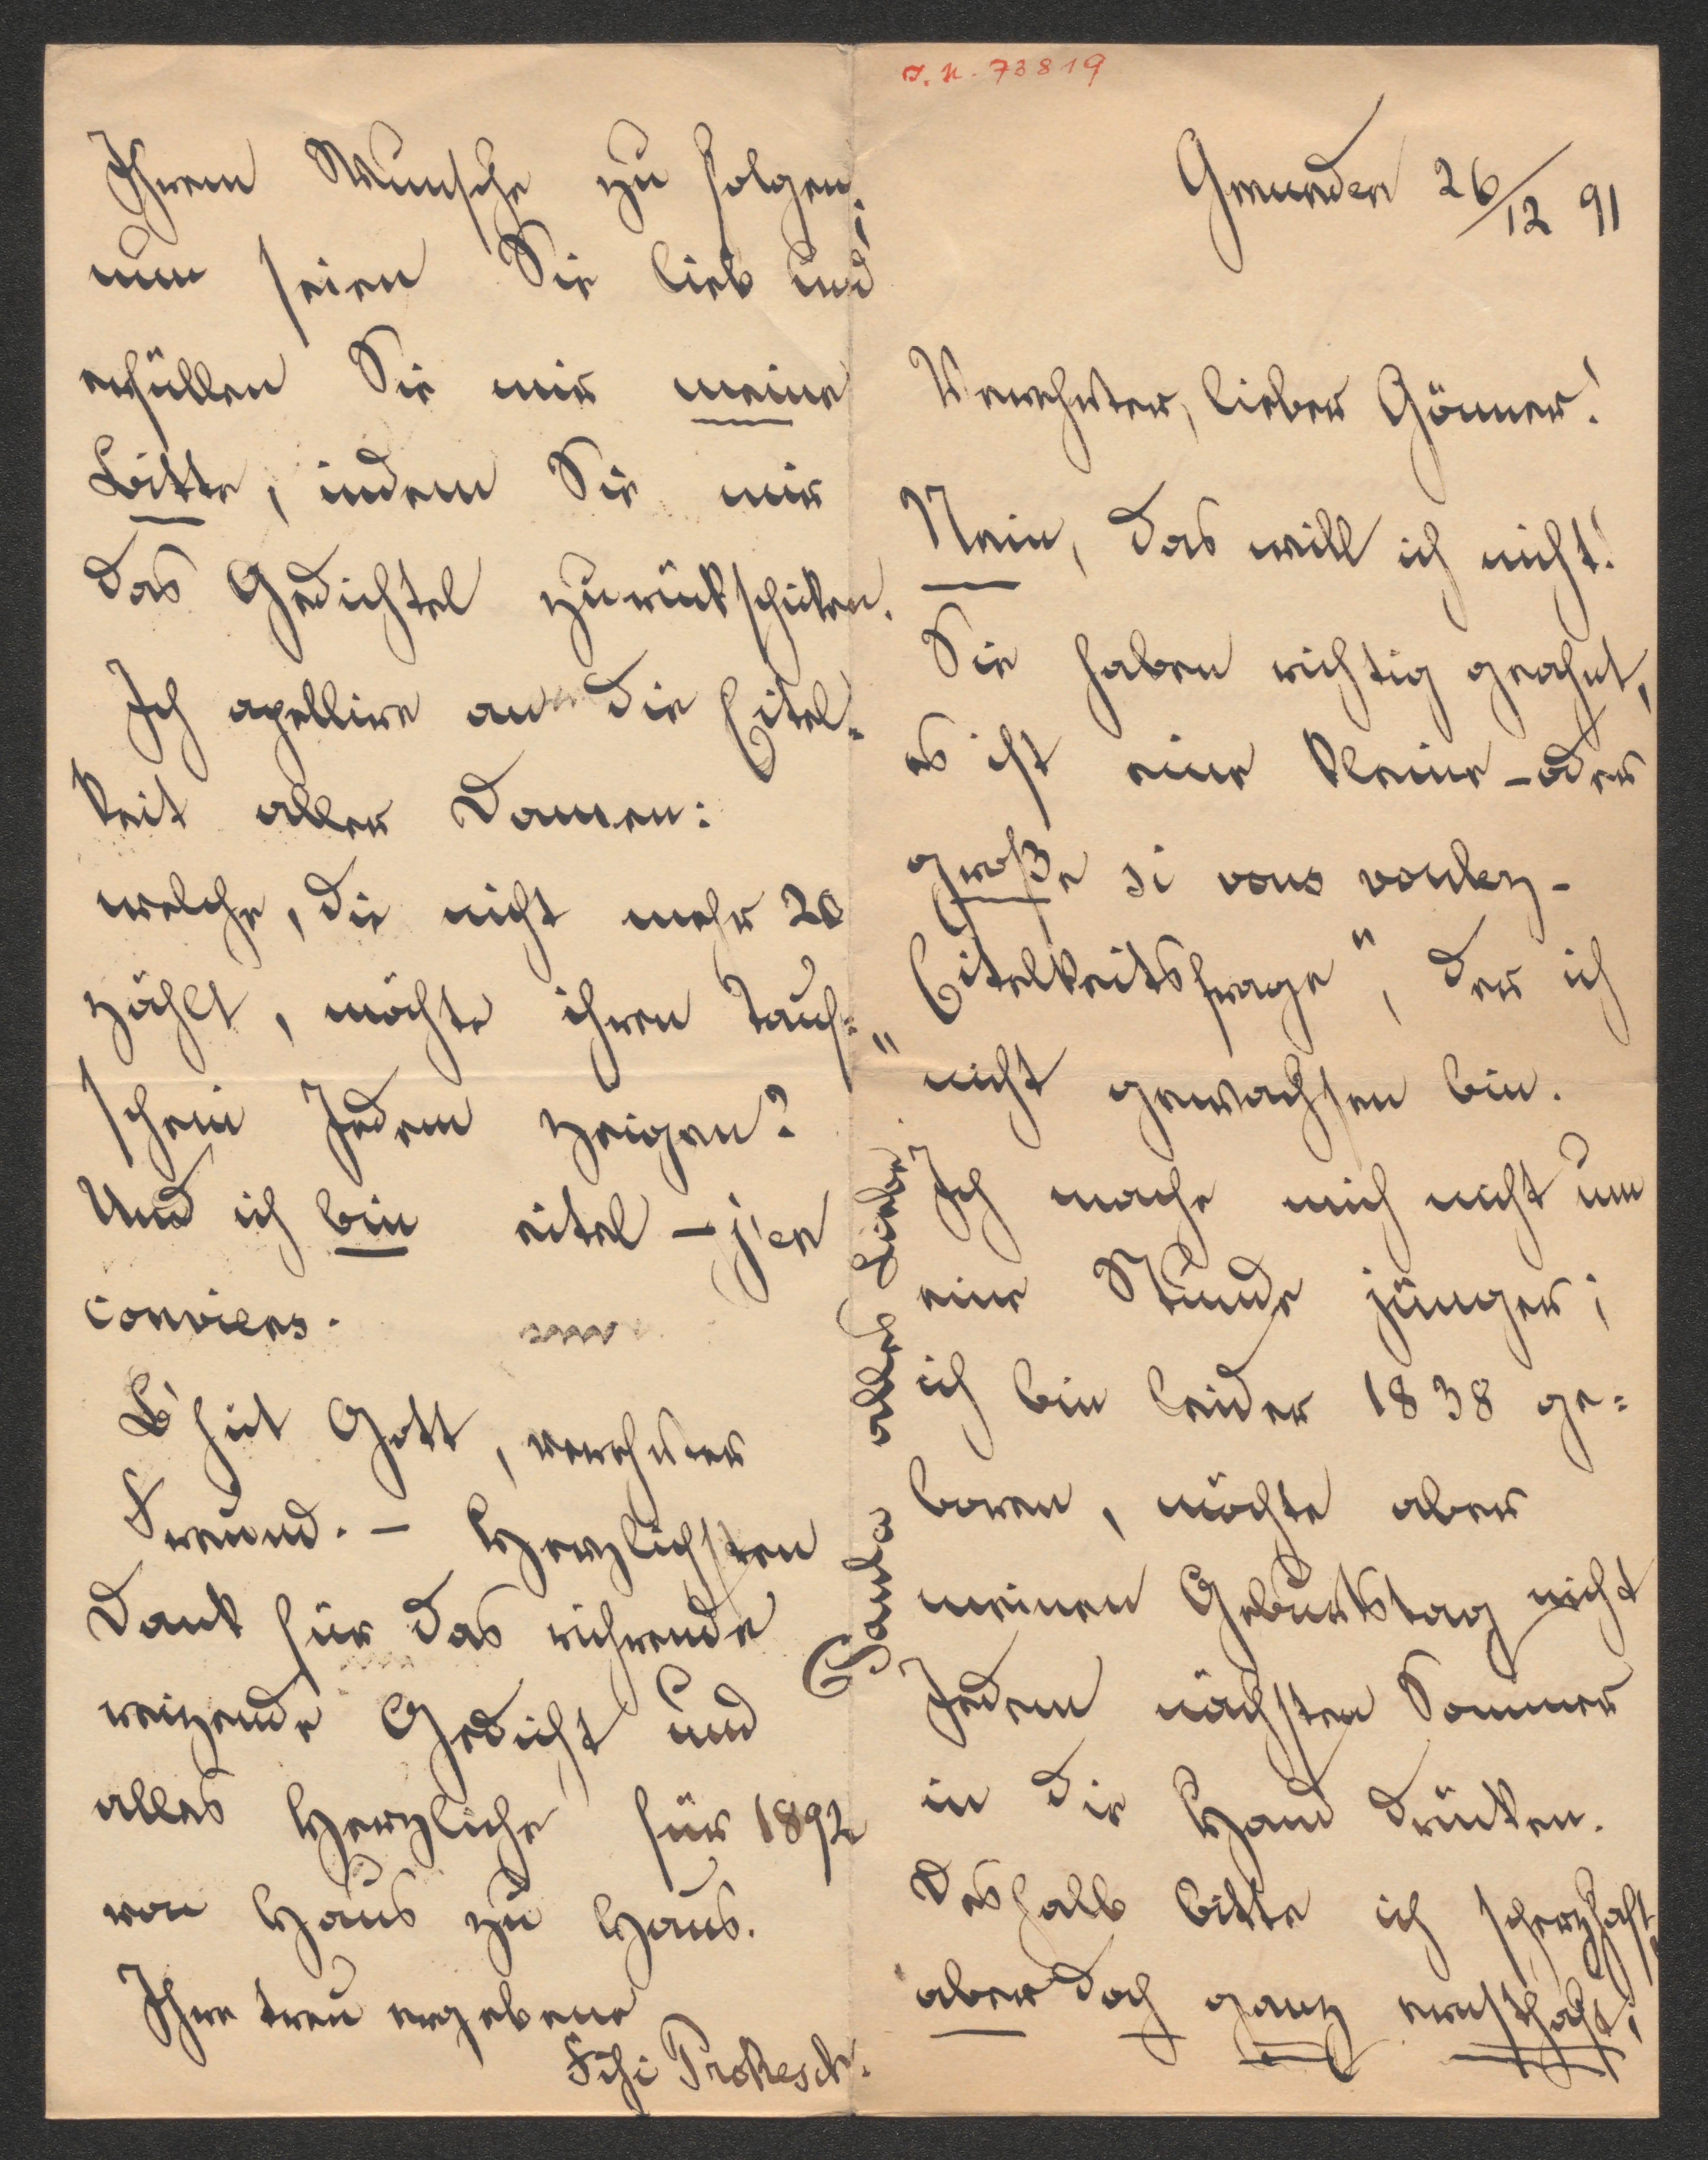 J. N. 73819
Gmunden 26/12 91
Verehrter, lieber Gönner!
Nein, das will ich nicht!
Sie haben richtig geahnt,
es ist eine kleine – oder
große si vous voulez –
„Eitelkeitsfrage", der ich
nicht gewachsen bin.
Ich mache mich nicht um
eine Stunde jünger;
ich bin leider 1838 ge=
boren, möchte aber
meinen Geburtstag nicht
Jedem nächsten Sommer
in die Hand drücken.
Deshalb bitte ich scherzhaft,
aber doch ganz ernsthaft,
Ihrem Wunsche zu folgen;
nun seien Sie lieb und
erfüllen Sie mir meine
Bitte, indem Sie mir
das Gedichtel zurückschicken.
Ich apellire an die Eitel=
keit aller Damen:
welche, die nicht mehr 20
zählt, möchte ihren Tauf=
schein Jedem zeigen?
Und ich bin eitel – j'en
conviens.
B'hüt Gott, verehrter
Freund. – Herzlichsten
Dank für das rührende
reizende Gedicht und
alles Herzliche für 1892
von Haus zu Haus.
Ihre treu ergebene
Fifi Prokesch.
Paula alles Liebe